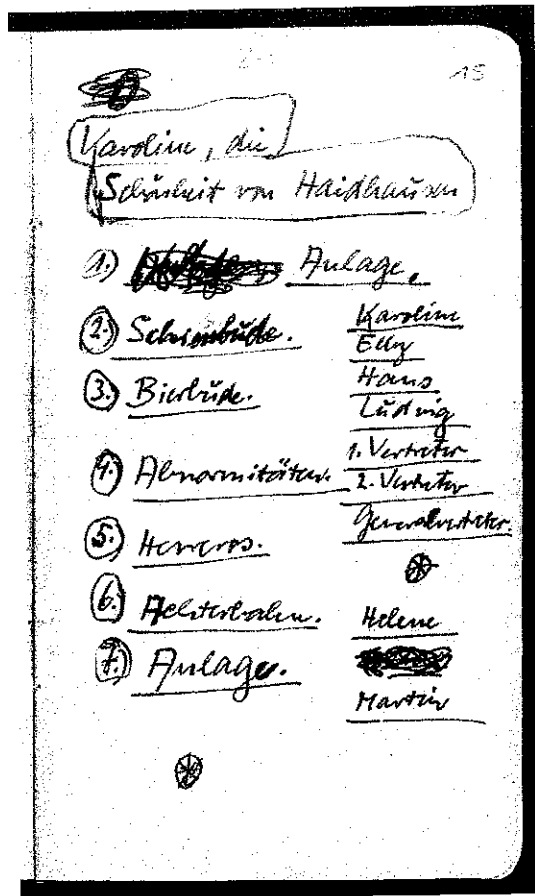 15
Karoline, die
Schönheit von Haidhausen
1.) Anlage.
2.) Schiessbude.
3.) Bierbude.
4.) Abnormitäten.
5.) Hereros.
6.) Achterbahn.
7.) Anlage.
Karoline
Elly
Hans
Ludwig
1. Vertreter
2. Vertreter
Generalvertreter.
Helene
Martin